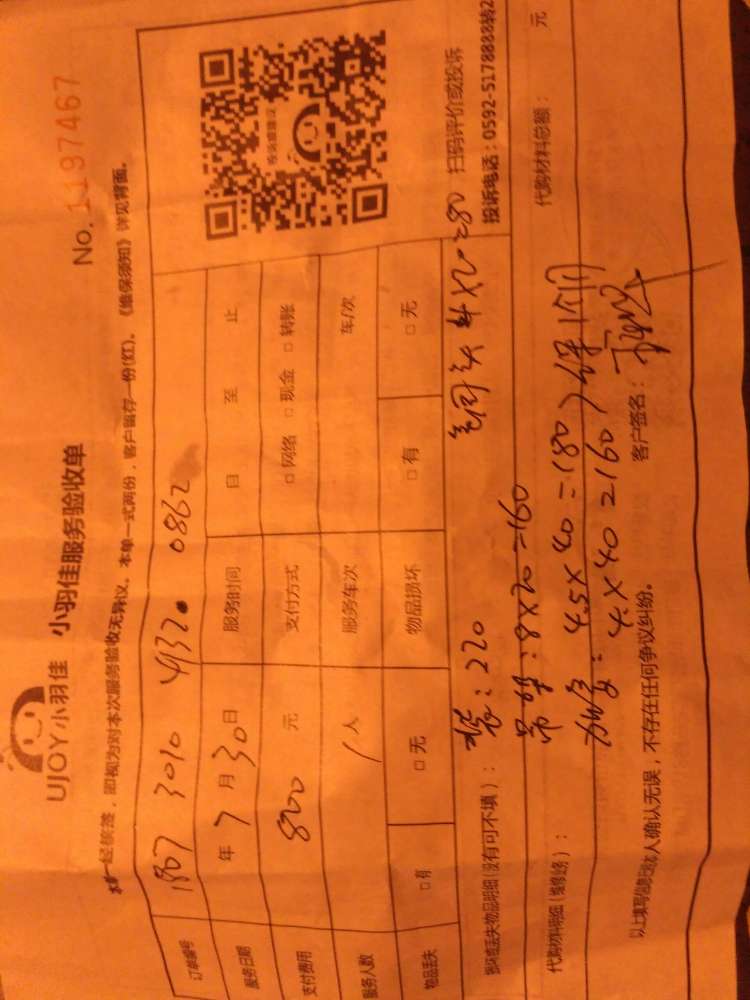 UJOY小羽佳 小羽佳服务验收单
No. 1197467
一经核签，即视为对本次服务验收无异议。本单一式两份，客户留存一份(红)。《维保须知》详见背面。
订单编号 1807 3010 4132 0862
服务日期 年 7 月 30 日 服务时间 日 至 止
支付费用 800 元 支付方式 □网络 □现金 □转账
服务人数 1 人 服务车次 车/次
物品丢失 □有 □无 物品损坏 □有 □无
损坏或丢失物品明细(没有可不填)：
扫码评价或投诉
投诉电话：0592-5178888转2
装：220
4×20=80
8×20=160
代购材料明细(维修业务)：
代购材料总额： 元
4.5×40=180
4×40=160
以上填写信息已经本人确认无误，不存在任何争议纠纷。
客户签名：